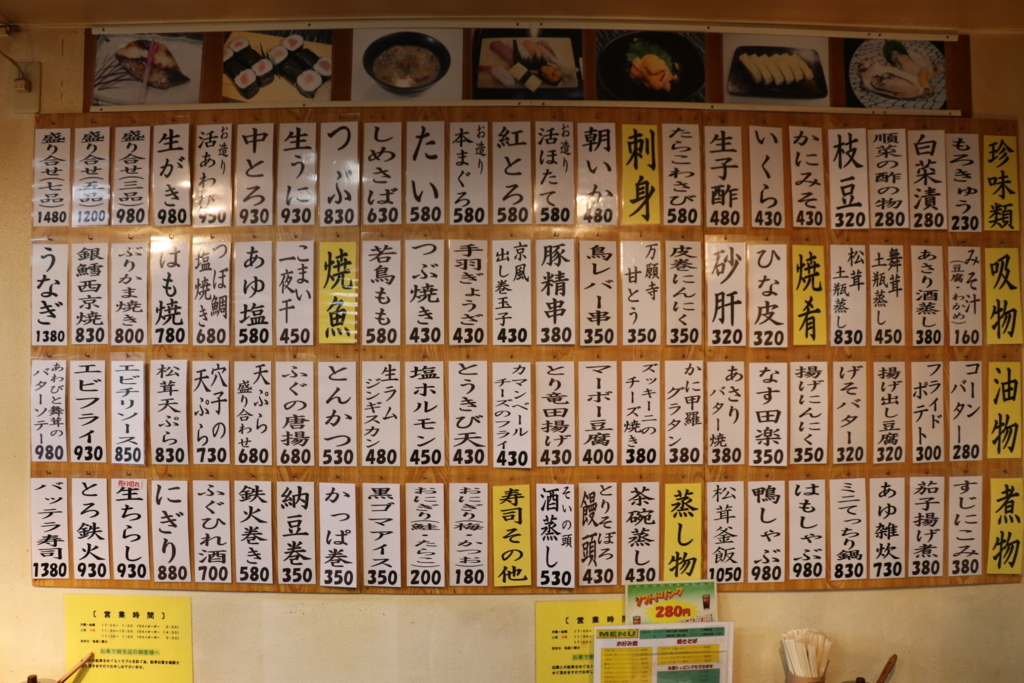 珍味類
もろきゅう 230
白菜漬 280
順菜の酢の物 280
枝豆 320
かにみそ 430
いくら 430
生子酢 480
たらこわさび 580
刺身
朝いか 480
お造り 活ほたて 580
紅とろ 580
お造り 本まぐろ 580
たい 580
しめさば 630
つぶ 830
生うに 930
中とろ 930
お造り 活あわび 950
生がき 980
盛り合せ三品 980
盛り合せ五品 1200
盛り合せ七品 1480
吸物
みそ汁 (豆腐・わかめ) 160
あさり酒蒸し 380
舞茸 土瓶蒸し 450
松茸 土瓶蒸し 830
焼肴
ひな皮 320
砂肝 320
皮巻にんにく 350
万願寺 甘とう 350
鳥レバー串 350
豚精串 380
京風 出し巻玉子 430
手羽ぎょうざ 430
つぶ焼き 430
若鳥もも 580
焼魚
こまい 一夜干 450
あゆ塩 580
つぼ鯛 塩焼き 680
はも焼 780
ぶりかま焼き 800
銀鱈西京焼 830
うなぎ 1380
油物
コーバターン 280
フライドポテト 300
揚げ出し豆腐 320
げそバター 320
揚げにんにく 350
なす田楽 350
あさり バター焼 380
かに甲羅 グラタン 380
ズッキーニの チーズ焼き 380
マーボー豆腐 400
とり竜田揚げ 430
カマンベール チーズのフライ 430
とうきび天 430
塩ホルモン 450
生ラム ジンギスカン 480
とんかつ 530
ふぐの唐揚 680
天ぷら 盛り合わせ 680
穴子の 天ぷら 730
松茸天ぷら 830
エビチリソース 850
エビフライ 930
あわびと舞茸の バターソテー 980
煮物
すじにこみ 380
茄子揚げ煮 380
あゆ雑炊 730
ミニてっちり鍋 830
はもしゃぶ 980
鴨しゃぶ 980
松茸釜飯 1050
蒸し物
茶碗蒸し 430
とりそぼろ 饅頭 430
そいの頭 酒蒸し 530
寿司その他
おにぎり(梅・かつお) 180
おにぎり(鮭・たらこ) 200
黒ゴマアイス 350
かっぱ巻 350
納豆巻 350
鉄火巻き 580
ふぐひれ酒 700
にぎり 880
売り切れ 生ちらし 930
とろ鉄火 930
バッテラ寿司 1380
[営業時間]
[営業時間]
ソフトドリンク
280円
MENU
お好み焼
焼きそば